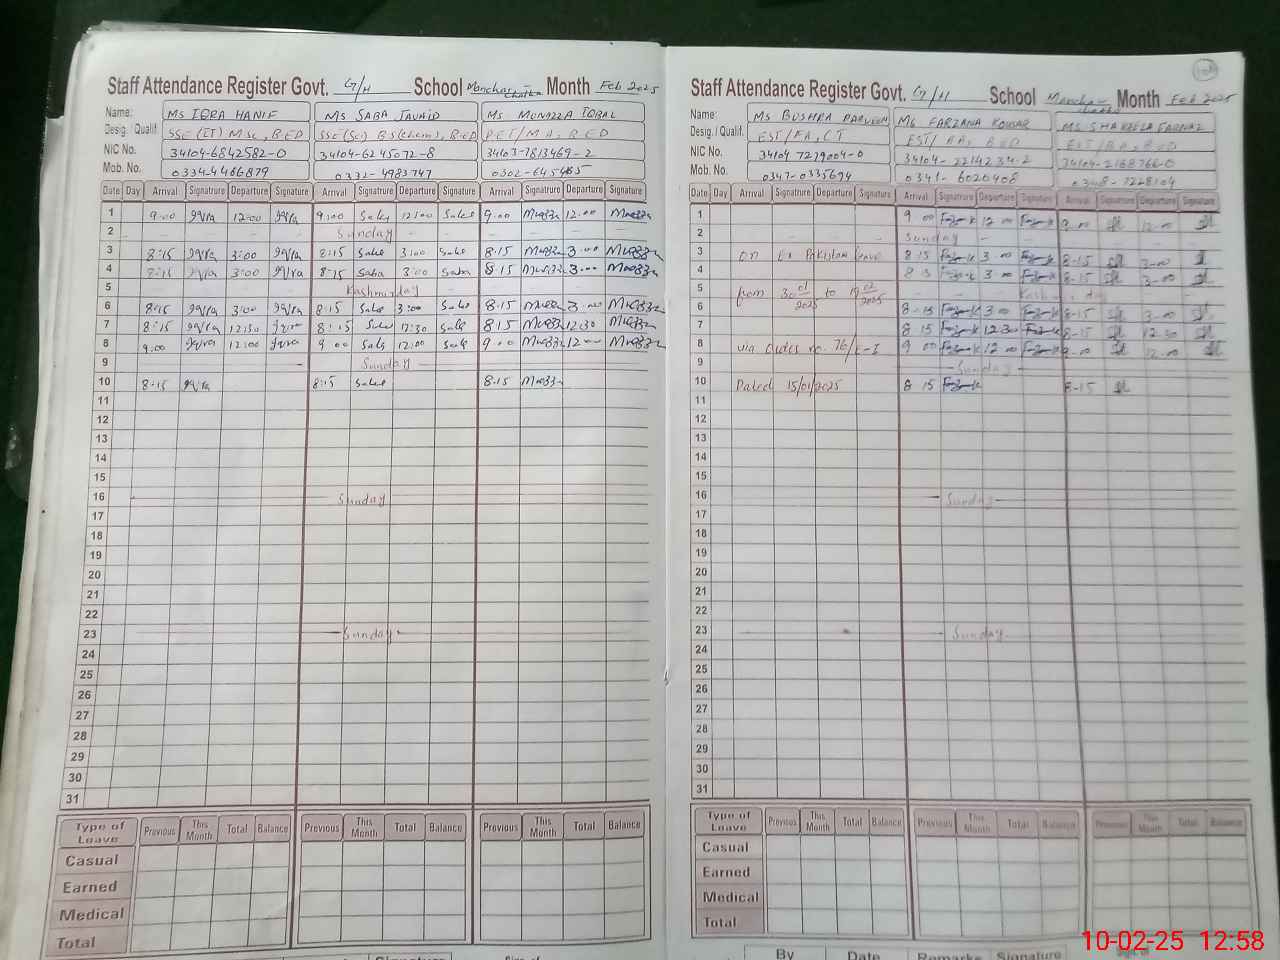 Staff Attendance Register Govt. G/H School Manchar Chatha Month Feb 2025
Name: Ms IQRA HANIF Ms SABA JAVAID Ms MUNAZZA IQBAL
Desig. / Qualif. SSE (IT) M.Sc, B.ED SSE (Sci) BS(Chem), B.ED PET/M.A, B.ED
NIC No. 34104-6842582-0 34104-6245072-8 34103-7813469-2
Mob. No. 0334-4466879 0332-4983747
Date Day Arrival Signature Departure Signature Arrival Signature Departure Signature Arrival Signature Departure Signature
1 9:00 Iqra 12:00 Iqra 9:00 Saba 12:00 Saba 9:00 Munazza 12:00 Munazza
2 Sunday
3 8:15 Iqra 3:00 Iqra 8:15 Saba 3:00 Saba 8:15 Munazza 3:00 Munazza
4 8:15 Iqra 3:00 Iqra 8:15 Saba 3:00 Saba 8:15 Munazza 3:00 Munazza
5 Kashmir day
6 8:15 Iqra 3:00 Iqra 8:15 Saba 3:00 Saba 8:15 Munazza 3:00 Munazza
7 8:15 Iqra 12:30 Iqra 8:15 Saba 12:30 Saba 8:15 Munazza 12:30 Munazza
8 9:00 Iqra 12:00 Iqra 9:00 Saba 12:00 Saba 9:00 Munazza 12:00 Munazza
9 Sunday
10 8:15 Iqra 8:15 Saba 8:15 Munazza
11
12
13
14
15
16 Sunday
17
18
19
20
21
22
23 Sunday
24
25
26
27
28
29
30
31
Type of Leave Previous This Month Total Balance Previous This Month Total Balance Previous This Month Total Balance
Casual
Earned
Medical
Total
Signature
Staff Attendance Register Govt. G/H School Manchar Chatha Month Feb 2025
Name: Ms BUSHRA PARVEEN Ms FARZANA KOUSAR Ms SHAKEELA FARNAZ
Desig. / Qualif. EST/FA, CT EST/BA, B.ED EST/BA, B.ED
NIC No. 34104 7279004-0 34104-2214234-2 34104-2168766-0
Mob. No. 0347-0335694 0341-6020408 0348-7228104
Date Day Arrival Signature Departure Signature Arrival Signature Departure Signature Arrival Signature Departure Signature
1 9:00 12:00 9:00 12:00
2 Sunday
3 on Ex Pakistan leave 8:15 3:00 8:15 3:00
4 8:15 3:00 8:15 3:00
5 from 30 01 2025 to 19 02 2025 Kashmir day
6 8:15 3:00 8:15 3:00
7 8:15 12:30 8:15 12:30
8 via Orders no. 76/E-I 9:00 12:00 9:00 12:00
9 Sunday
10 Dated 15/01/2025 8:15 8:15
11
12
13
14
15
16 Sunday
17
18
19
20
21
22
23 Sunday
24
25
26
27
28
29
30
31
Type of Leave Previous This Month Total Balance Previous This Month Total Balance Previous This Month Total Balance
Casual
Earned
Medical
Total
By Date Remarks Signature
10-02-25 12:58